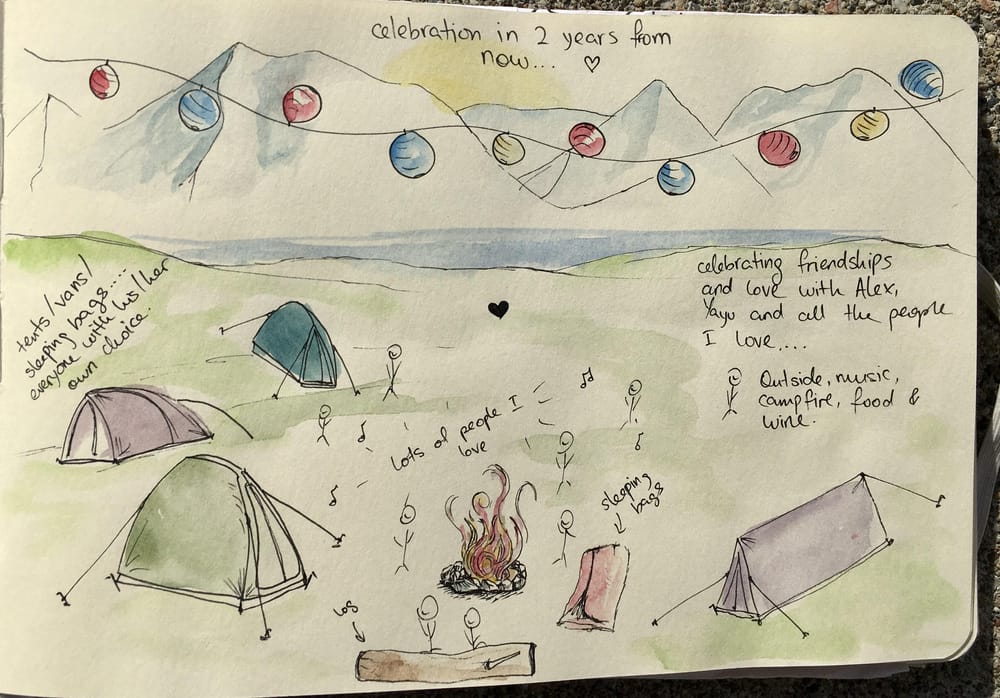 celebration in 2 years from
now... ♡
tents/vans/
sleeping bags...
everyone with his/her
own choice.
celebrating friendships
and love with Alex,
Yayu and all the people
I love....
Outside, music,
campfire, food &
wine.
lots of people I
love
sleeping
bags
log